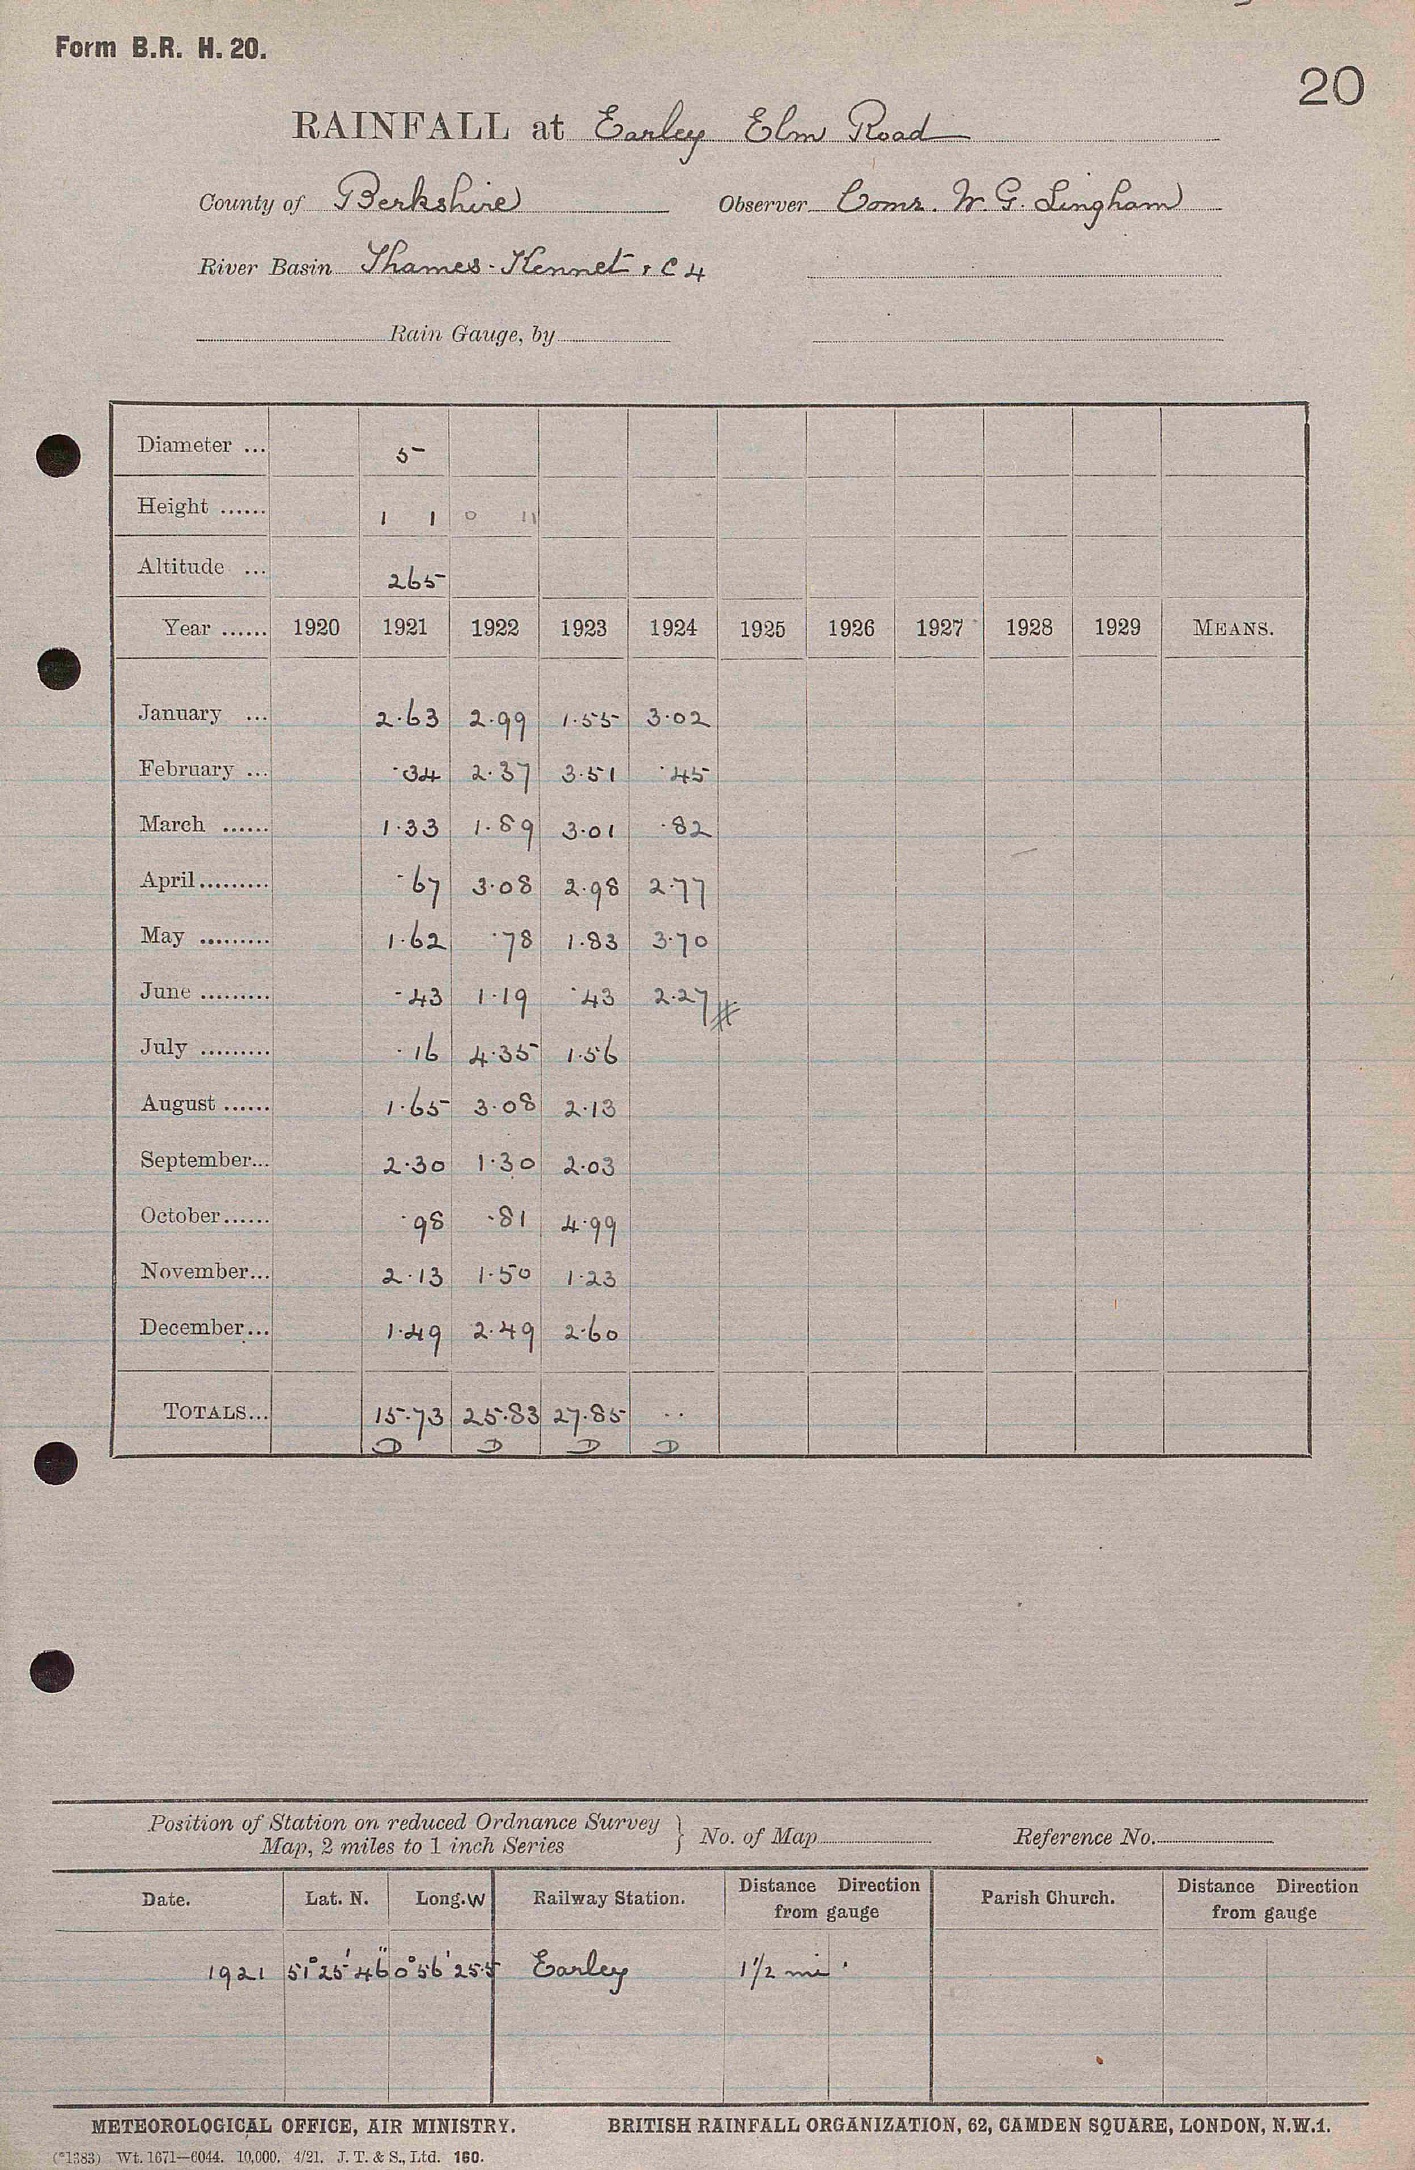 Form B.R. H. 20.
20
RAINFALL at Earley Elm Road
County of Berkshire Observer Comr. W. G. Lingham
River Basin Thames - Kennet + C 4
Rain Gauge, by
Diameter ... 5
Height ...... 1 1 0 11
Altitude ... 265
Year ...... 1920 1921 1922 1923 1924 1925 1926 1927 1928 1929 MEANS.
January ... 2.63 2.99 1.55 3.02
February ... .34 2.37 3.51 .45
March ...... 1.33 1.89 3.01 .82
April......... .67 3.08 2.98 2.77
May ......... 1.62 .78 1.83 3.70
June ......... .43 1.19 .43 2.27 #
July ......... .16 4.35 1.56
August ...... 1.65 3.08 2.13
September... 2.30 1.30 2.03
October...... .98 .81 4.99
November... 2.13 1.50 1.23
December... 1.49 2.49 2.60
TOTALS... 15.73 25.83 27.85 ..
D D D D
Position of Station on reduced Ordnance Survey
Map, 2 miles to 1 inch Series } No. of Map Reference No.
Date. Lat. N. Long. W Railway Station. Distance Direction from gauge Parish Church. Distance Direction from gauge
1921 51° 25' 46" 0° 56' 255 Earley 1 1/2 mi
METEOROLOGICAL OFFICE, AIR MINISTRY. BRITISH RAINFALL ORGANIZATION, 62, CAMDEN SQUARE, LONDON, N.W.1.
(*1383) Wt. 1671—6044. 10,000. 4/21. J. T. & S., Ltd. 160.